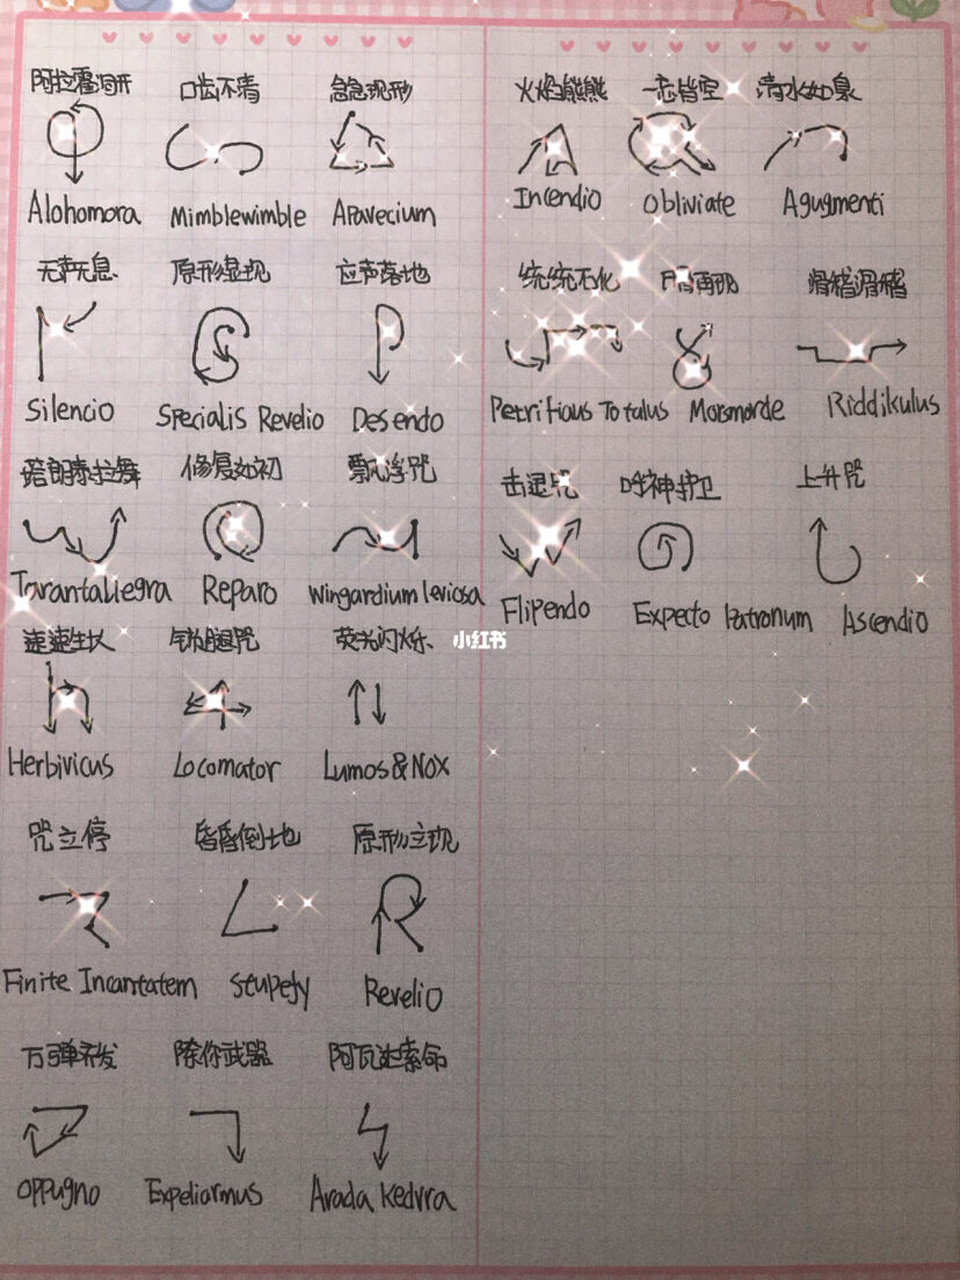 阿拉霍洞开 口齿不清 急急现形
Alohomora Mimblewimble Aparecium
无声无息 原形显现 应声落地
Silencio Specialis Revelio Desendo
塔朗泰拉舞 修复如初 飘浮咒
Tarantallegra Reparo Wingardium leviosa
速速生长 锁腿咒 荧光闪烁
Herbivicus Locomator Lumos&Nox
咒立停 昏昏倒地 原形立现
Finite Incantatem Stupefy Revelio
万弹齐发 除你武器 阿瓦达索命
Oppugno Expeliarmus Avada Kedvra
火焰熊熊 一忘皆空 清水如泉
Incendio Obliviate Agugmenti
统统石化 再现 滑稽滑稽
Petrifious Totalus Morsmorde Riddikulus
击退咒 呼神护卫 上升咒
Flipendo Expecto Patronum Ascendio
小红书